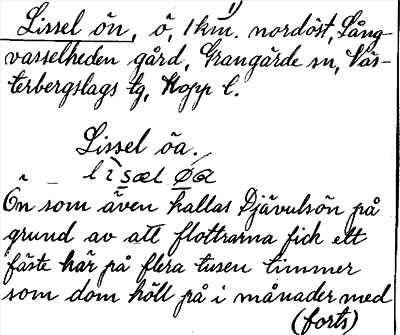 1)
Lissel ön, ö, 1 km. nordöst, Lång-
vasselheden gård, Grangärde sn, Väs-
terbergslags tg, Kopp l.
Lissel öa.
lìsæl øa
Ön som även kallas Djävulsön på
grund av att flottrarna fick ett
fäste här på flera tusen timmer
som dom höll på i månader med
(forts)